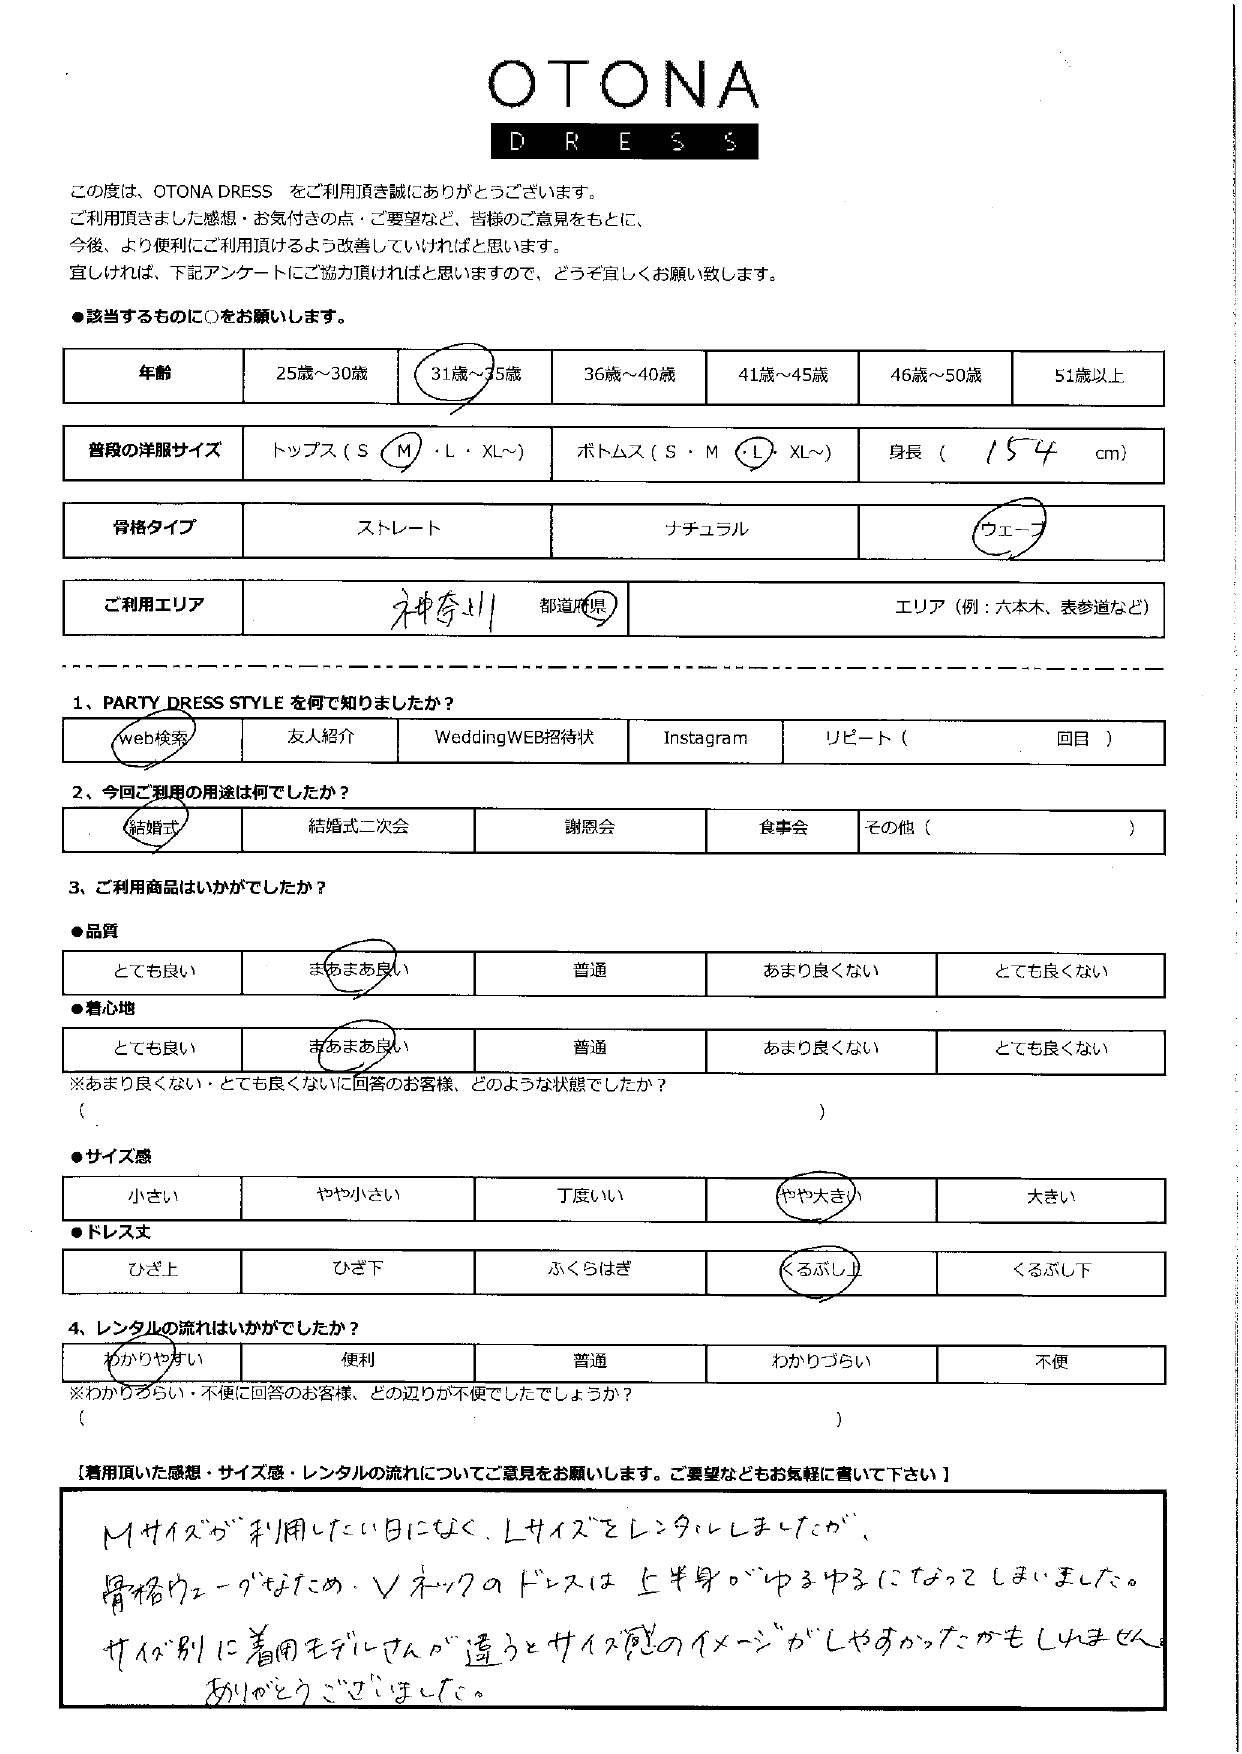 OTONA
DRESS
この度は、OTONA DRESS をご利用頂き誠にありがとうございます。
ご利用頂きました感想・お気付きの点・ご要望など、皆様のご意見をもとに、
今後、より便利にご利用頂けるよう改善していければと思います。
宜しければ、下記アンケートにご協力頂ければと思いますので、どうぞ宜しくお願い致します。
●該当するものに○をお願いします。
年齢 25歳～30歳 31歳～35歳 36歳～40歳 41歳～45歳 46歳～50歳 51歳以上
普段の洋服サイズ トップス ( S ・ M ・L ・ XL～) ボトムス ( S ・ M ・L・ XL～) 身長 ( 154 cm)
骨格タイプ ストレート ナチュラル ウェーブ
ご利用エリア 神奈川 都道府県 エリア（例：六本木、表参道など）
1、PARTY DRESS STYLE を何で知りましたか？
web検索 友人紹介 WeddingWEB招待状 Instagram リピート ( 回目 )
2、今回ご利用の用途は何でしたか？
結婚式 結婚式二次会 謝恩会 食事会 その他 ( )
3、ご利用商品はいかがでしたか？
●品質
とても良い まあまあ良い 普通 あまり良くない とても良くない
●着心地
とても良い まあまあ良い 普通 あまり良くない とても良くない
※あまり良くない・とても良くないに回答のお客様、どのような状態でしたか？
( )
●サイズ感
小さい やや小さい 丁度いい やや大きい 大きい
●ドレス丈
ひざ上 ひざ下 ふくらはぎ くるぶし上 くるぶし下
4、レンタルの流れはいかがでしたか？
わかりやすい 便利 普通 わかりづらい 不便
※わかりづらい・不便に回答のお客様、どの辺りが不便でしたでしょうか？
( )
【着用頂いた感想・サイズ感・レンタルの流れについてご意見をお願いします。ご要望などもお気軽に書いて下さい】
Mサイズが利用したい日になく、Lサイズをレンタルしましたが、
骨格ウェーブなため、Vネックのドレスは上半身がゆるゆるになってしまいました。
サイズ別に着用モデルさんが違うとサイズ感のイメージがしやすかったかもしれません。
ありがとうございました。